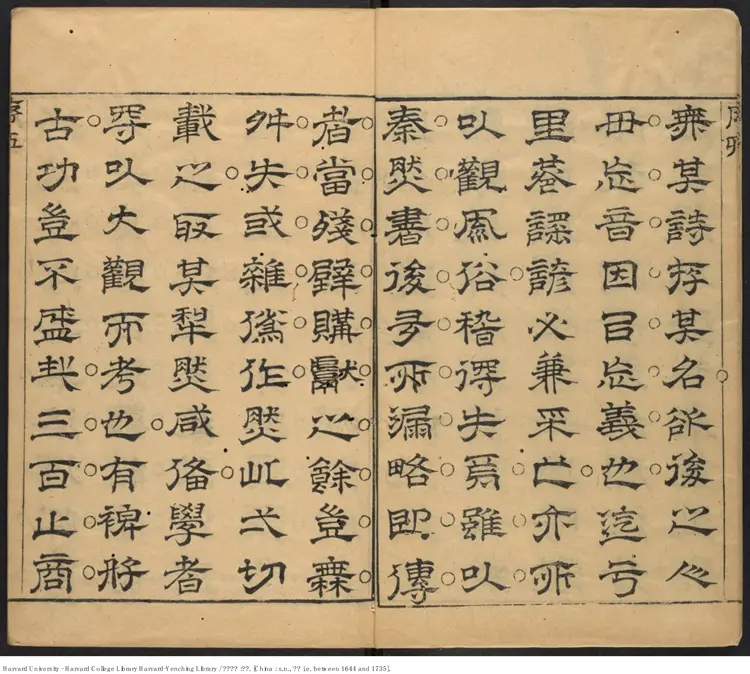 無其詩存其名欲後之人
毋忘音因㠯忘義也迄于
里巷謠諺必兼采亡亦所
以觀風俗稽得失焉雖以
秦焚書後多所漏略即傳
者當殘壁購獻之餘豈無
舛失或雜偽作然此弌切
載之取其犁然咸備學者
得以大觀而考也有裨於
古功豈不盛哉三百止商
序五
Harvard University - Harvard College Library Harvard-Yenching Library / ???? : ??, [China : s.n., ?? i.e. between 1644 and 1735].